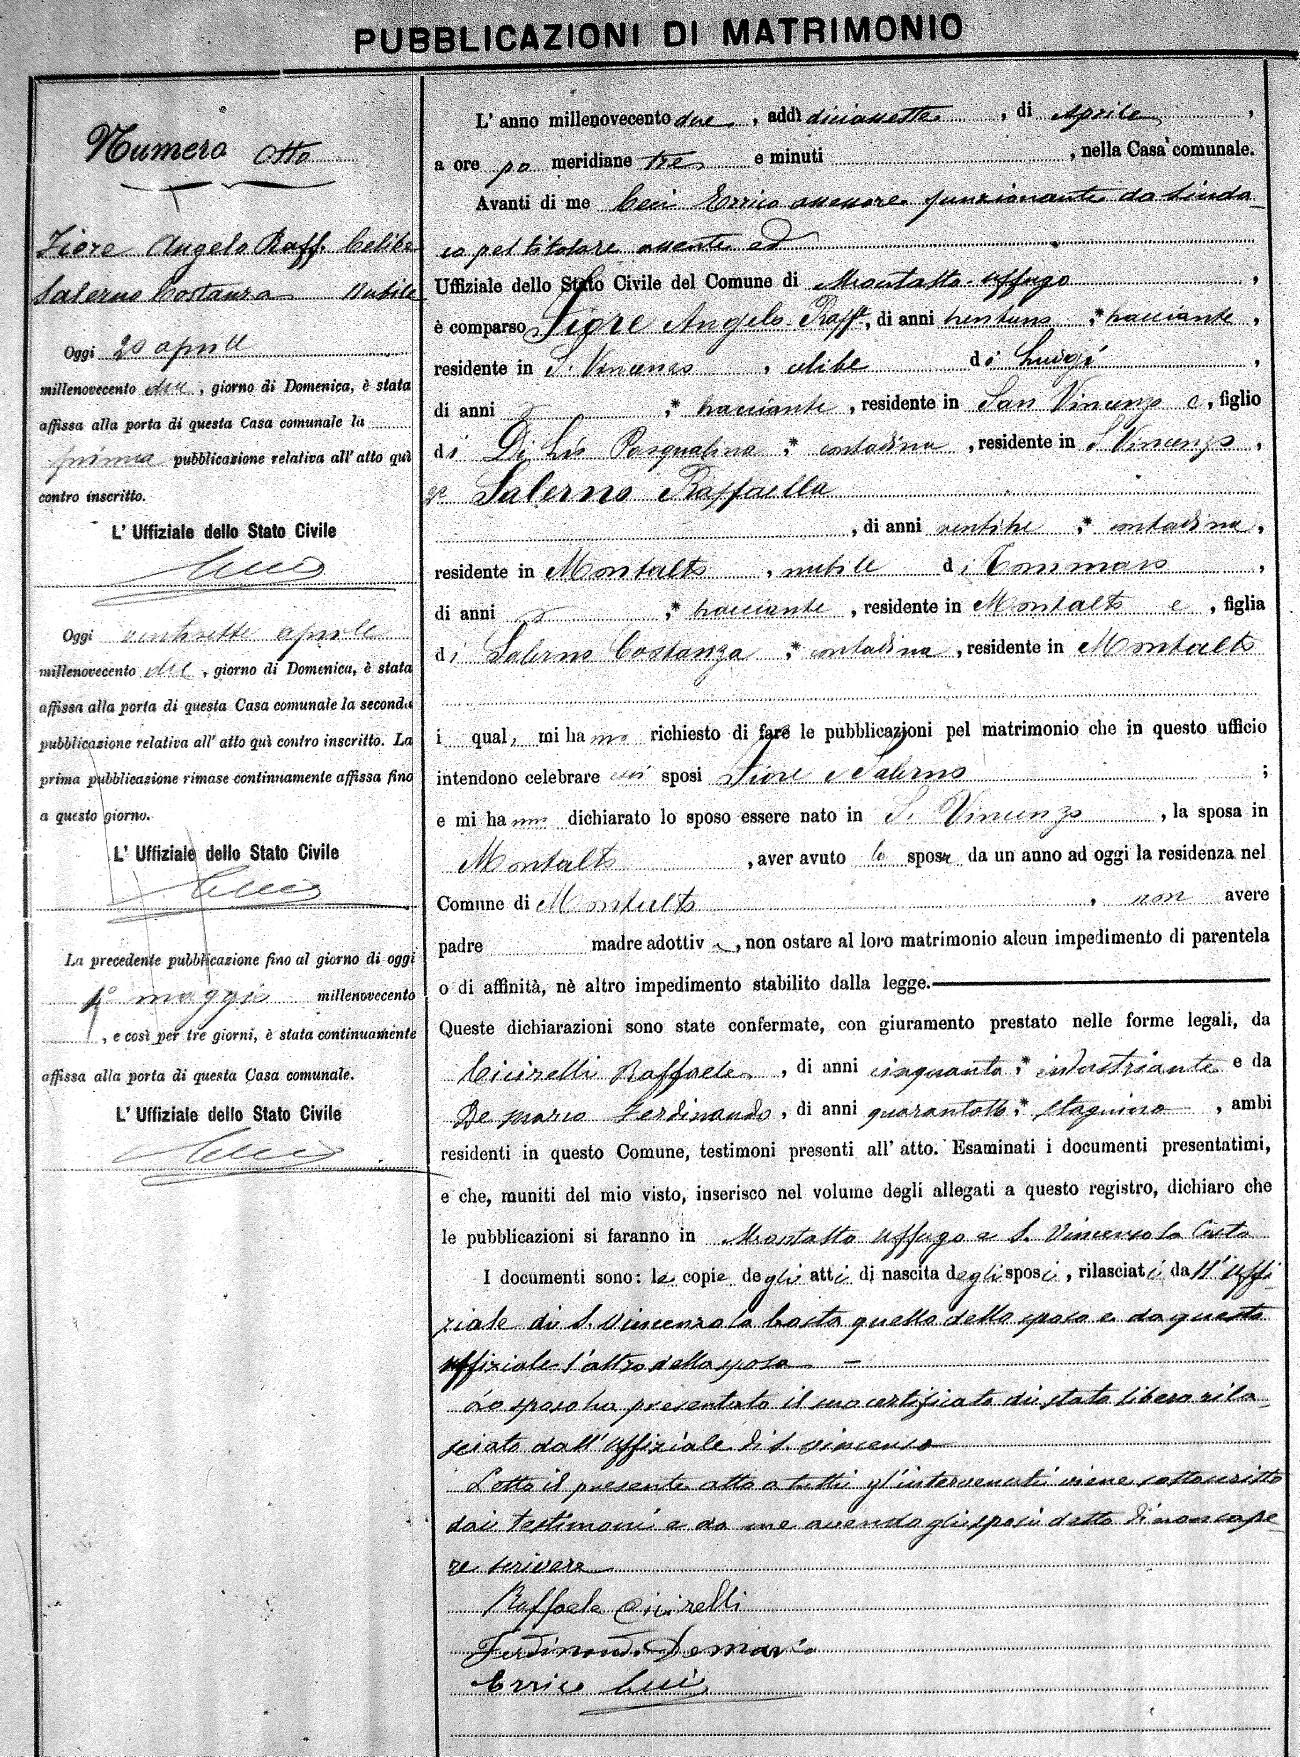 PUBBLICAZIONI DI MATRIMONIO
Numero Otto
Fiore Angelo Raff. Celibe
Salerno Costanza Nubile
Oggi 20 aprile
millenovecento due, giorno di Domenica, è stata
affissa alla porta di questa Casa comunale la
prima pubblicazione relativa all' atto quì
contro inscritto.
L' Uffiziale dello Stato Civile
Ceci
Oggi ventisette aprile
millenovecento due, giorno di Domenica, è stata
affissa alla porta di questa Casa comunale la seconda
pubblicazione relativa all' atto quì contro inscritto. La
prima pubblicazione rimase continuamente affissa fino
a questo giorno.
L' Uffiziale dello Stato Civile
Ceci
La precedente pubblicazione fino al giorno di oggi
1° maggio millenovecento
, e così per tre giorni, è stata continuamente
affissa alla porta di questa Casa comunale.
L' Uffiziale dello Stato Civile
Ceci
L' anno millenovecento due, addì diciassette, di Aprile,
a ore po meridiane tre e minuti , nella Casa comunale.
Avanti di me Ceci Errico assessore funzionante da Sinda-
co pel titolare assente ed
Uffiziale dello Stato Civile del Comune di Montalto-Uffugo,
è comparso Fiore Angelo Raff., di anni trentuno,* bracciante,
residente in S. Vincenzo, celibe di Luigi,
di anni ,* bracciante, residente in San Vincenzo e, figlio
di Di Lio Pasqualina,* contadina, residente in S. Vincenzo,
2° Salerno Raffaella
, di anni ventitre,* contadina,
residente in Montalto, nubile di Tommaso,
di anni ,* bracciante, residente in Montalto e, figlia
di Salerno Costanza,* contadina, residente in Montalto
i quali mi hanno richiesto di fare le pubblicazioni pel matrimonio che in questo ufficio
intendono celebrare essi sposi Fiore e Salerno ;
e mi hanno dichiarato lo sposo essere nato in S. Vincenzo, la sposa in
Montalto, aver avuto la sposa da un anno ad oggi la residenza nel
Comune di Montalto, non avere
padre madre adottiv , non ostare al loro matrimonio alcun impedimento di parentela
o di affinità, nè altro impedimento stabilito dalla legge.
Queste dichiarazioni sono state confermate, con giuramento prestato nelle forme legali, da
Cicirelli Raffaele, di anni cinquanta,* industriante e da
De Marco Ferdinando, di anni quarantotto,* stagnino, ambi
residenti in questo Comune, testimoni presenti all' atto. Esaminati i documenti presentatimi,
e che, muniti del mio visto, inserisco nel volume degli allegati a questo registro, dichiaro che
le pubblicazioni si faranno in Montalto Uffugo e S. Vincenzo la Costa
I documenti sono: le copie degli atti di nascita degli sposi, rilasciati dall' Uffi-
ziale di S. Vincenzo la Costa quello dello sposo e da questo
uffiziale l'altro della sposa
Lo sposo ha presentato il suo certificato di stato libero rila-
sciato dall' uffiziale di S. Vincenzo
Letto il presente atto a tutti gl'intervenuti viene sottoscritto
dai testimoni e da me avendo gli sposi detto di non sape-
re scrivere
Raffaele Cicirelli
Ferdinando Demarco
Errico Ceci